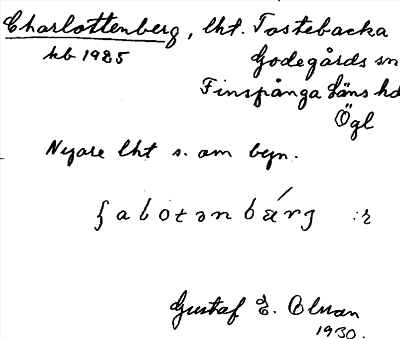 Charlottenberg, lht. Tostebacka
kb 1925
Godegårds sn
Finspånga läns hd
Ögl
Nyare lht s. om byn.
Gustaf E. Olsson
1930.